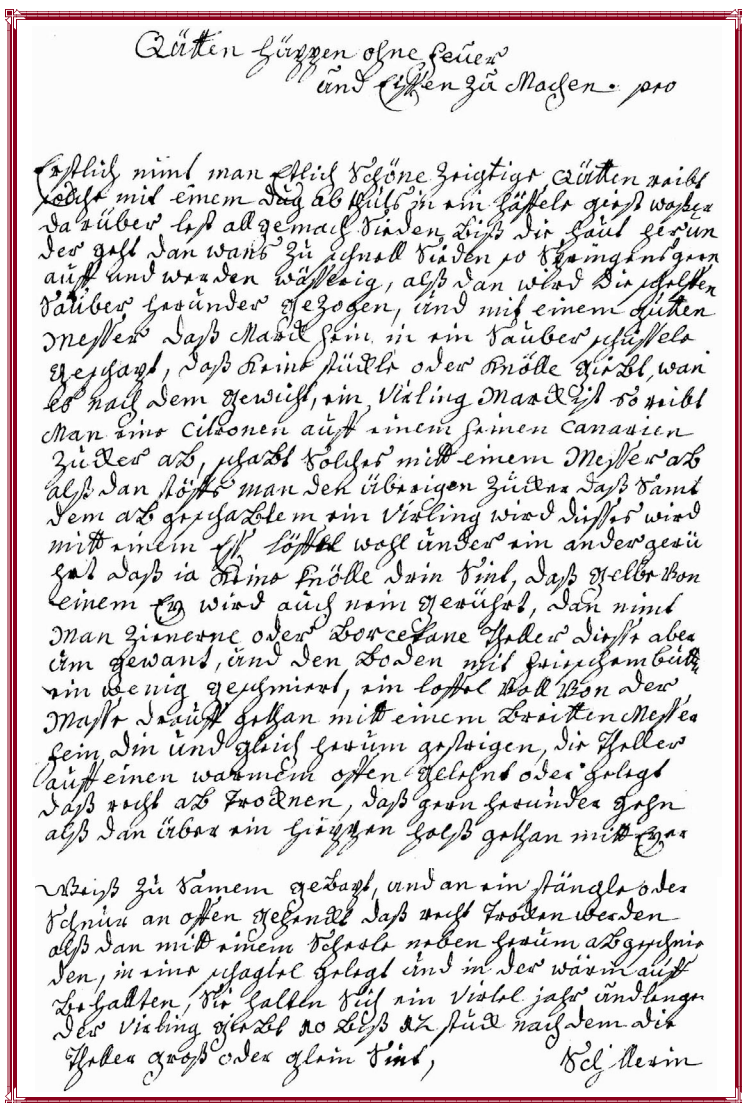 Qütten Hüppen ohne Feuer
und Eissen zu Machen. pro
Erstlich nimt man Etlich Schöne Zeigtige Qütten reibt
solche mit einem Dug ab thuts in ein häfele giest waßer
darüber lest allgemach Sieden biß die haut herun
der geht dan wans zu schnell Sieden so Springens gern
auff und werden wässerig, alß dan wird die schelffen
Sauber herunder gezogen, und mit einem gutten
Messer daß Marck fein in ein Sauber schüssele
geschapt, daß Keine stückle oder Knölle giebt, wan
es nach dem gewicht, ein Virling Marck ist so reibt
Man eine Citronen auff einem feinen Canarien
Zucker ab, schabt Solches mitt einem Messer ab
alß dan stösts man den überigen Zucker daß Samt
dem abgeschabtem ein Virling wird diesses wird
mitt einem Ess löffel wohl under ein ander gerü
hrt daß ia Keine Knölle drin Sint, daß gelbe von
einem Ey wird auch nein gerührt, dan nimt
Man Zienerne oder Borcelane Theller diesse aber
um gewant, und den Boden mit frieschem butt
ein wenig geschmiert, ein loffel voll von der
Masse drauff gethan mitt einem Breitten Messer
fein din und gleich herum gestrigen, die Theller
auff einen warmem offen gelehnt oder gelegt
daß recht ab Trocknen, daß gern herunder gehn
alß dan über ein hieppen holß gethan mitt Eyer
Weiß zu Samem gebapt, und an ein stängle oder
Schnur an offen gehenckt daß recht Trocken werden
alß dan mitt einem Scherle neben herum abgeschnie
den, in eine schagtel gelegt und in der wärm auff
Behallten, Sie halten Sich ein Virtel jahr und lenger
der Virling giebt 10 biß 12 stuck nach dem die
Theller groß oder glein Sint,